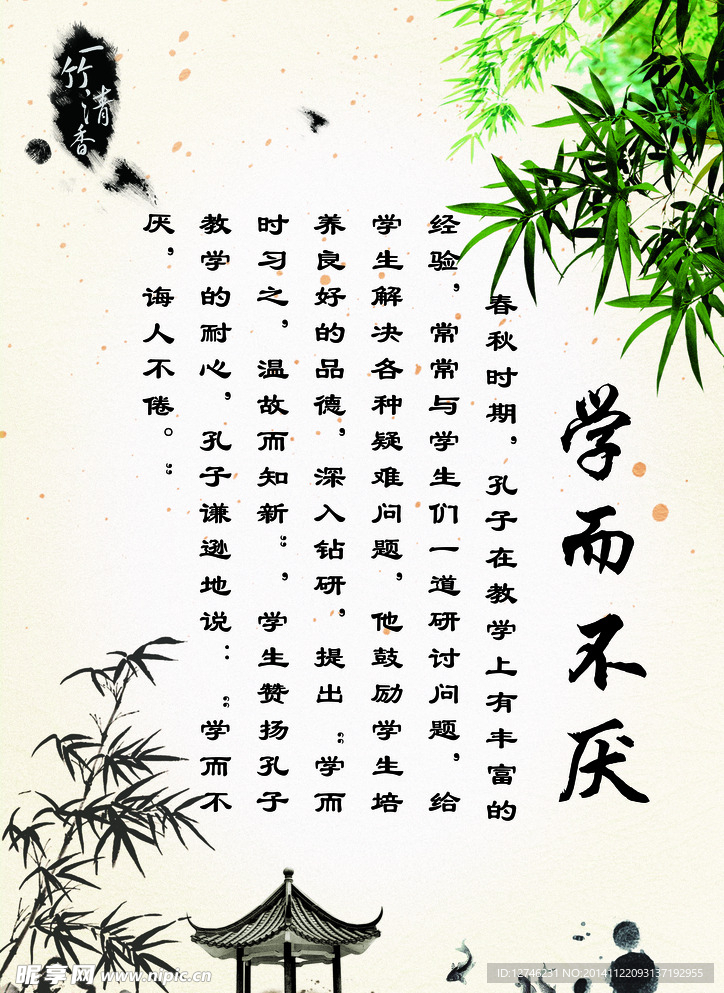 学而不厌
春秋时期，孔子在教学上有丰富的
经验，常常与学生们一道研讨问题，给
学生解决各种疑难问题，他鼓励学生培
养良好的品德，深入钻研，提出“学而
时习之，温故而知新”，学生赞扬孔子
教学的耐心，孔子谦逊地说：“学而不
厌，诲人不倦。”
一竹清香
昵享网 www.nipic.cn
ID:12746231 NO:20141122093137192955